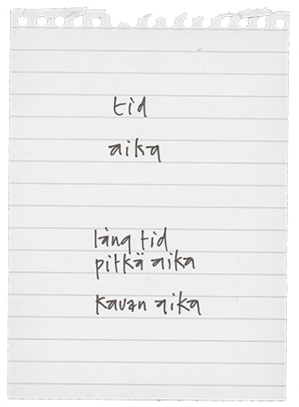 tid
aika
lång tid
pitkä aika
kauan aika